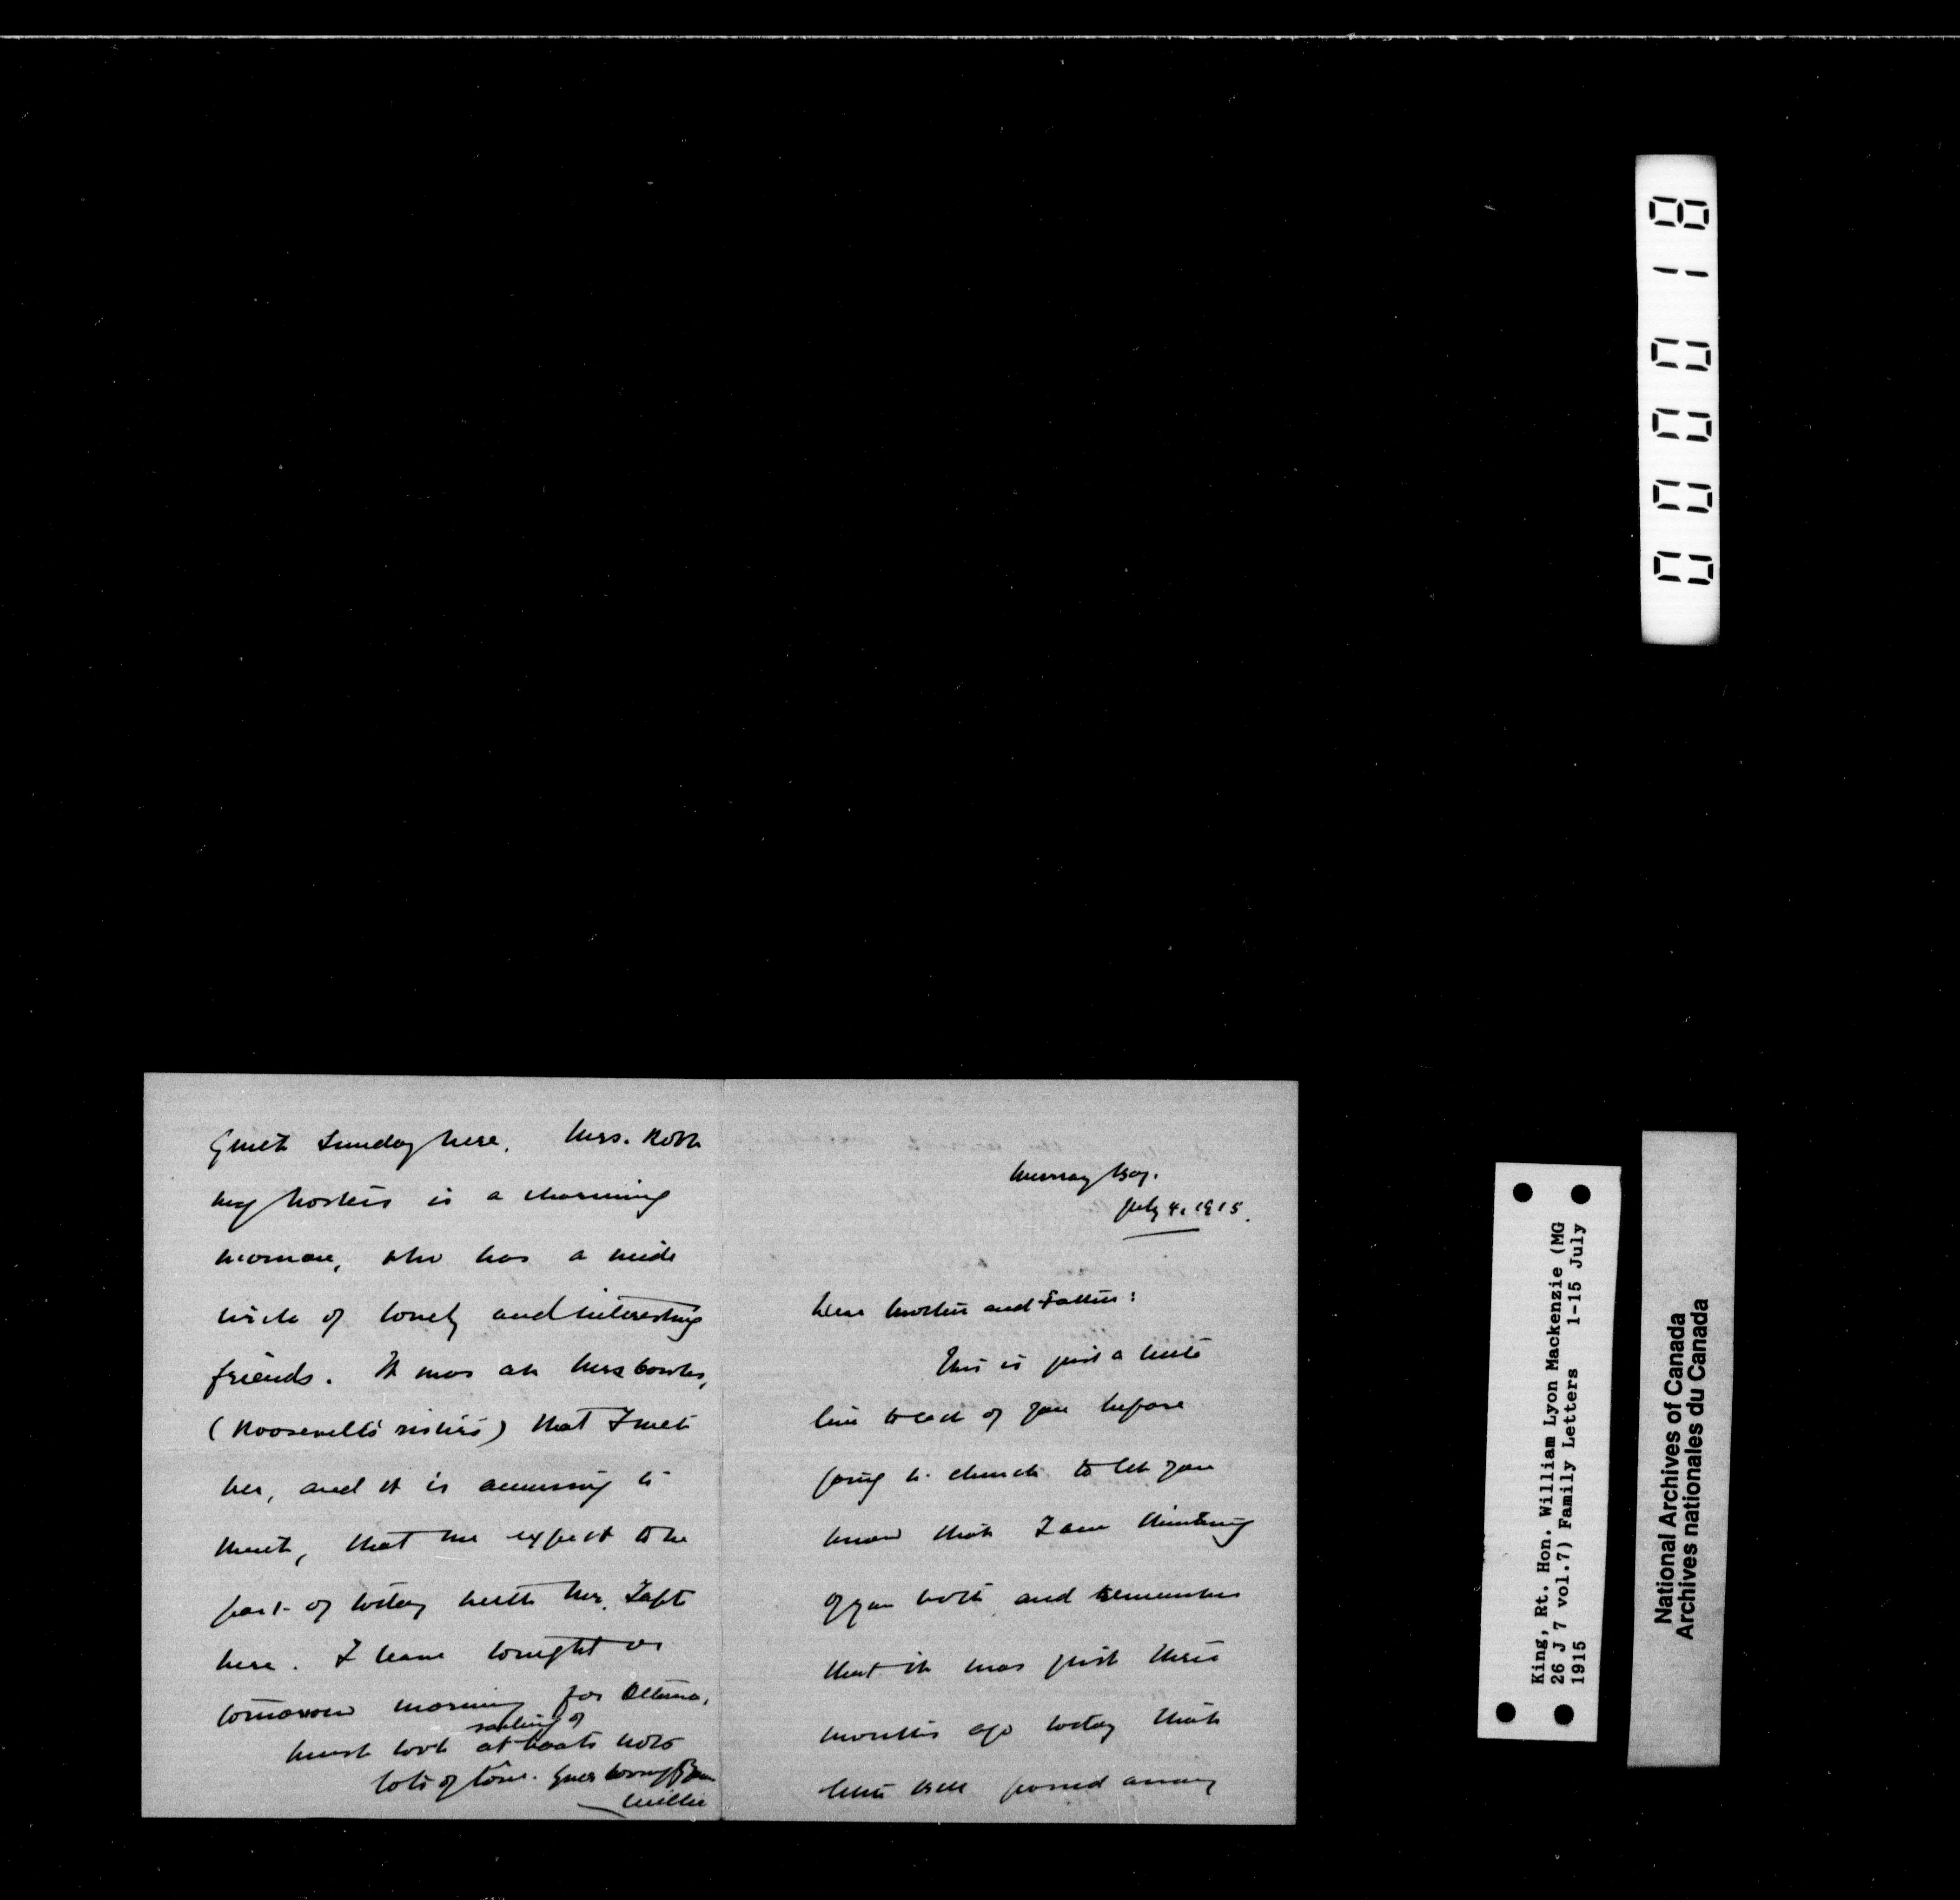 Murray Bay.
July 4, 1915.
Dear Mother and Father:
This is just a little
line to each of you before
going to church to let you
know that I am thinking
of you both and remember
that it was just three
months ago today that
little Bell passed away
Quiet Sunday here. Mrs. Robb
my hostess is a charming
woman, who has a wide
circle of lovely and interesting
friends. It was at Mrs Cowles,
(Roosevelt's sisters) that I met
her, and it is amusing to
that we expect to be
part of today with Mr. Taft
here. I leave tonight or
tomorrow morning for Ottawa,
sailing of
must look at boats now
lots of love. Your loving Boy
Willie
000018
King, Rt. Hon. William Lyon Mackenzie (MG
26 J 7 vol.7) Family Letters 1-15 July
1915
National Archives of Canada
Archives nationales du Canada